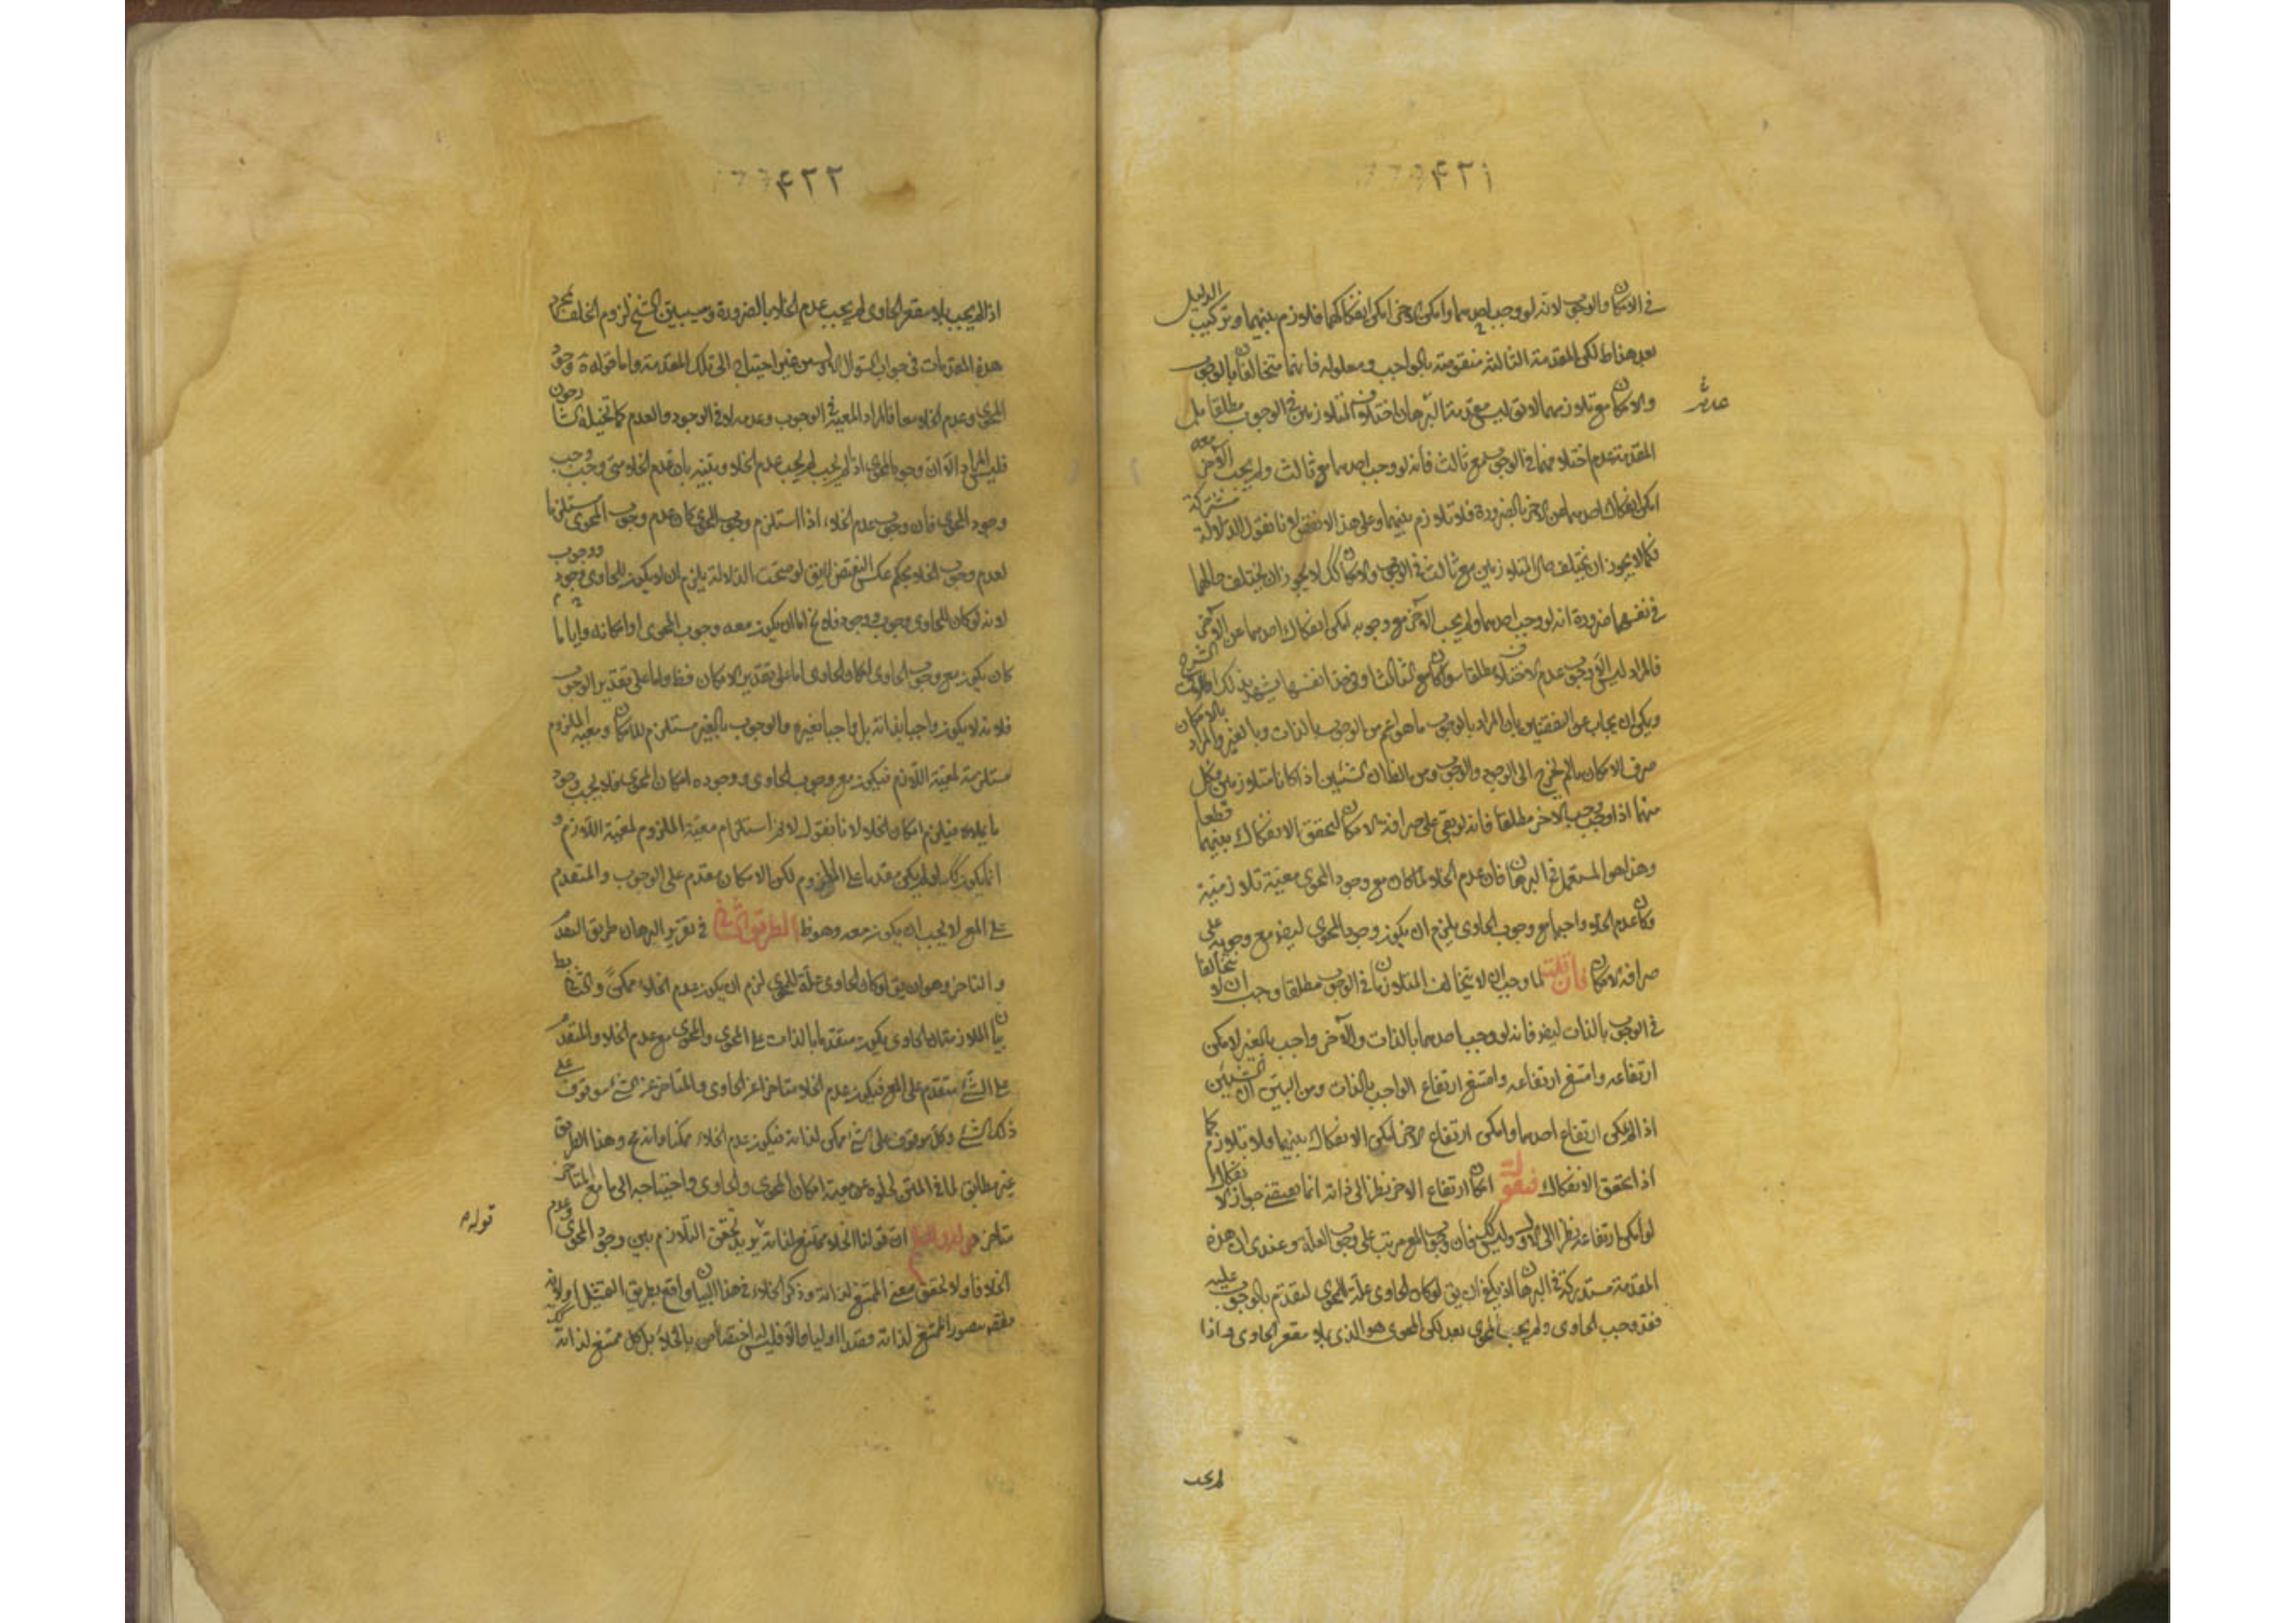 ۴۲۱
في الامكان والوجوب لانه لو وجب احدهما وامكن الاخر امكن انفكاكهما فلا تلازم بينهما وتركيب الدليل
بعد هذا ظ لكن المقدمة الثالثة منقوضة بالواجب ومعلوله فانهما متخالفان بالوجوب
والامكان مع تلازمهما لا يق ليس مقدمة البرهان اختلاف المتلازمين في الوجوب مطلقا بل
المقدمة عدم اختلافهما في الوجوب مع ثالث فانه لو وجب احدهما مع ثالث ولم يجب الاخر معه
امكن انفكاك احدهما عن الاخر بالضرورة فلا تلازم بينهما وعلى هذا لا نقض لانا نقول الدلالة مشتركة
فكما لا يجوز ان يختلف حال المتلازمين مع ثالث في الوجوب والامكان كك لا يجوز ان يختلف حالهما
في نفسهما ضرورة انه لو وجب احدهما ولم يجب الاخر مع وجوبه امكن انفكاك احدهما عن الاخر
فالمراد ليس الا وجوب عدم الاختلاف مطلقا سواء كان مع الثالث او في حد انفسهما يشهد بذلك
ويمكن ان يجاب عن النقض بان المراد بالوجوب ما هو اعم من الوجوب بالذات وبالغير والمراد بالامكان
صرف الامكان ما لم يخرج الى الوجود والوجوب ومن البين ان الشيئين اذا كانا متلازمين فكل
منهما اذا وجب وجب الاخر مطلقا فانه لو بقي على صرافة الامكان لتحقق الانفكاك بينهما قطعا
وهذا هو المستعمل في البرهان فان عدم الخلاء لما كان مع وجود المحوي معية تلازمية
وكان عدم الخلاء واجبا مع وجوب الحاوي يلزم ان يكون وجود المحوي ايضا مع وجوبه على
صرافة الامكان فان قلت لما وجب ان لا يتخالف المتلازمان في الوجوب مطلقا وجب ان لا يتخالفا
في الوجوب بالذات ايضا فانه لو وجب احدهما بالذات والاخر واجب بالغير لامكن
ارتفاعه وامتنع ارتفاعه وامتنع ارتفاع الواجب بالذات ومن البين ان الشيئين
اذا لم يمكن ارتفاع احدهما وامكن ارتفاع الاخر امكن الانفكاك بينهما ولا تلازم كما
اذا تحقق الانفكاك فنقول امكان ارتفاع الاخر نظرا الى ذاته انما يقتضي جواز الانفكاك
لو امكن ارتفاعه نظرا الى الاول وليس كك فان وجوب المع مرتب على وجوب العلة وعندي ان هذه
المقدمة مستدركة في البرهان اذ يكفي ان يق لو كان الحاوي علة للمحوي لتقدم بالوجوب عليه
فقد وجب الحاوي ولم يجب المحوي بعد لكن المحوي هو الذي يملاء مقعر الحاوي واذا
لم يجب
۴۲۲
اذا لم يجب ملاء مقعر الحاوي لم يجب عدم الخلاء بالضرورة وسيبين الشيخ لزوم الخلف بمجرد
هذه المقدمات في جواب السوال الاول من غير احتياج الى تلك المقدمة واما قوله وجود
المحوي وعدم الخلاء معا فالمراد المعية في الوجوب وعدمه لا في الوجود والعدم كما تخيله الشارحون
فليس المراد الا ان وجود المحوي اذا لم يجب لم يجب عدم الخلاء وتبينه بان عدم الخلاء متى وجب وجب
وجود المحوي فان وجوب عدم الخلاء اذا استلزم وجوب المحوي كان عدم وجوب المحوي مستلزما
لعدم وجوب الخلاء بحكم عكس النقيض لا يق لو صحت الدلالة يلزم ان لا يكون للحاوي وجود ووجوب
لانه لو كان للحاوي وجوب ووجود فلا يخ اما ان يكون معه وجوب المحوي او امكانه وايا ما
كان يكون مع وجوب الحاوي امكان الحاوي اما على تقدير الامكان فظ واما على تقدير الوجوب
فلانه لا يكون واجبا بذاته بل واجبا بغيره والوجوب بالغير مستلزم للامكان ومعية الملزوم
مستلزمة لمعية اللازم فيكون مع وجوب الحاوي ووجوده امكان المحوي فلا يجب وجود
ما يملاءه فيلزم امكان الخلاء لانا نقول لا نم استلزام معية الملزوم لمعية اللازم و
انما يكون كك لو لم يكن مقدما على الملزوم لكن الامكان مقدم على الوجوب والمتقدم
على المع لا يجب ان يكون معه وهو ظ الطريق الثاني في تقرير البرهان طريق التقدم
والتاخر وهو ان يق لو كان الحاوي علة للمحوي لزم ان يكون عدم الخلاء ممكنا والثاني بط
بيان الملازمة ان الحاوي يكون متقدما بالذات على المحوي والمحوي مع عدم الخلاء والمتقدم
على الشيء متقدم على المع فيكون عدم الخلاء متاخرا عن الحاوي والمتاخر عن الشيء موقوف على
ذلك الشيء وكل موقوف على الشيء ممكن لذاته فيكون عدم الخلاء ممكنا وانه مح وهذا الطريق
غير مطابق لما في المتن لخلوه عن معية امكان المحوي والحاوي واحتياجه الى ما مع المتاخر
متاخر ان قولنا الخلاء ممتنع لذاته يريد تحقق التلازم بين وجود المحوي وعدم
الخلاء فاولا تحقق معنى الممتنع لذاته وذكر الخلاء في هذا البيان واقع بطريق التمثيل
تصور الممتنع لذاته والا فليس اختصاص بالخلاء بل كل ممتنع لذاته
قوله